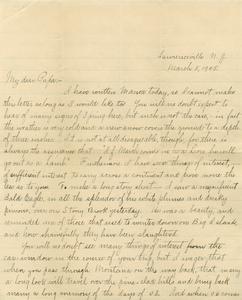 Lawrenceville N. J.
March 8, 1905.
My dear Papa:-
I have written Mama today, so I cannot make
this letter as long as I would like to. You will no doubt expect to
hear of many signs of spring here, but such is not the case, in fact
the weather is very cold and a new snow covers the ground to a depth
of three inches. It is not at all disagreeable, though, for there is
always the assurance that "if March comes in as a lion she will
go out as a lamb". Furthermore I have seen things of interest,
of sufficient interest to carry across a continent and prove none the
less so to you. To make a long story short - I saw a magnificent
Bald Eagle, in all the splendor of his white plumes and dusky
brown, over in Stony Brook yesterday. He was a beauty, and
reminded me of those that used to winter down on Big Island
and how shamefully they have been slaughtered.
You will no doubt see many things of interest from the
car window in the course of your trip, but I wager, that
when you pass through Montana on the way back, that many
a long look will travel over the pine-clad hills and bring back
many a long memory of the days of '82. And when it comes